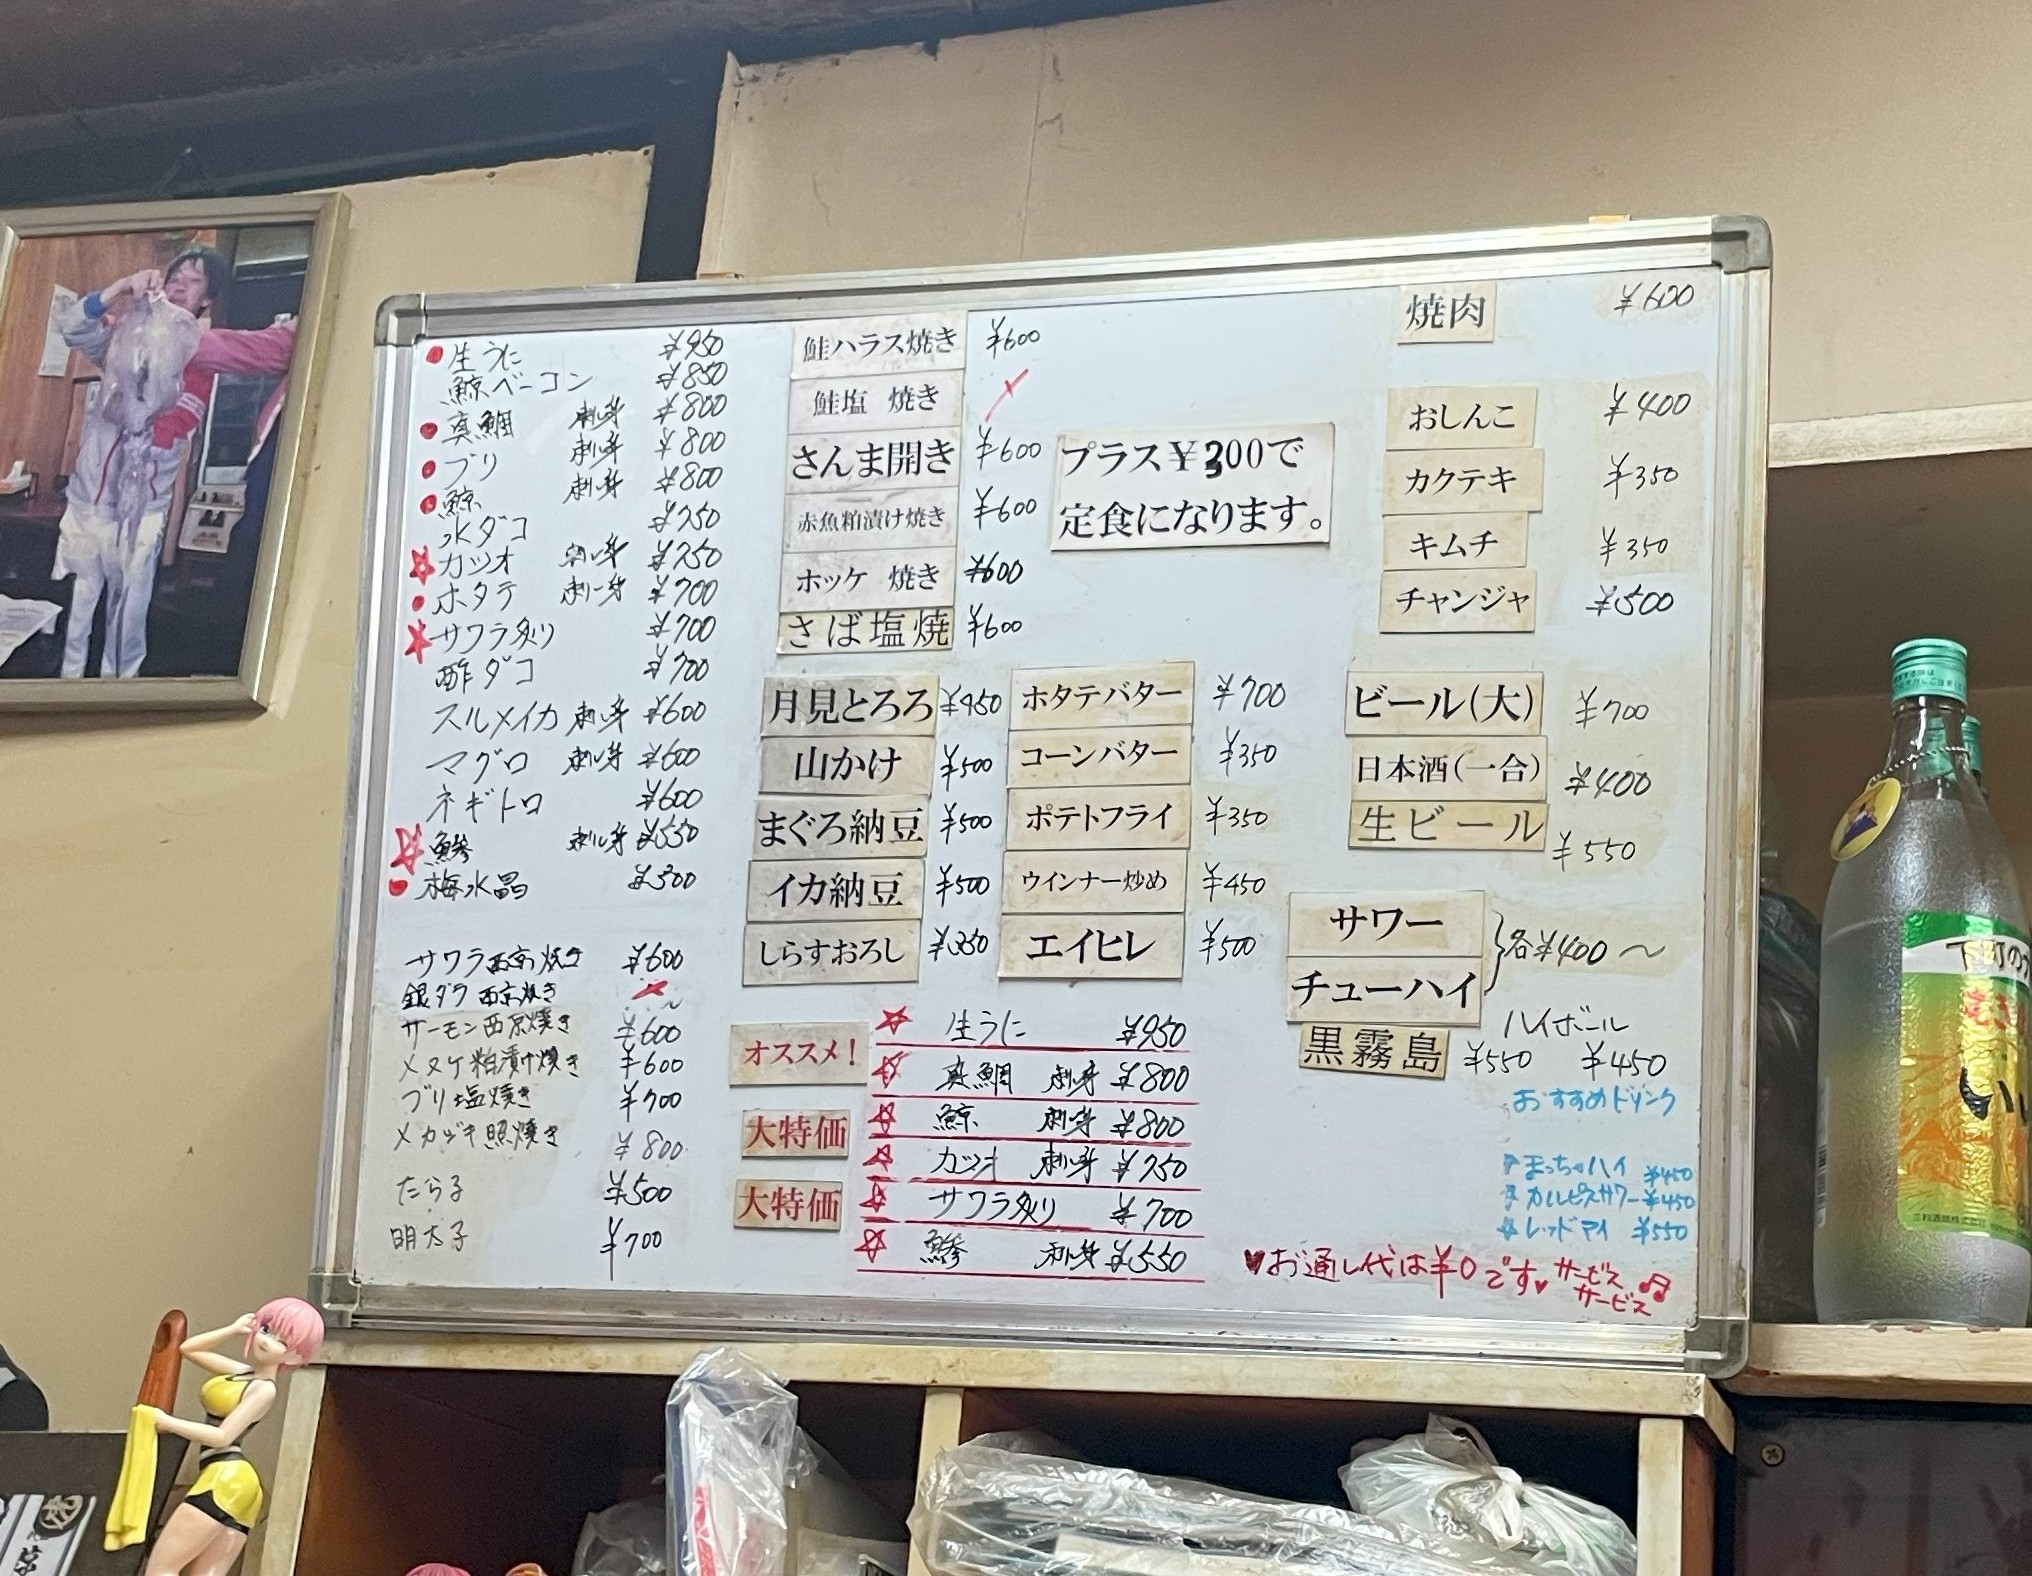 生うに ¥950
鯨ベーコン ¥850
真鯛 刺身 ¥800
ブリ 刺身 ¥800
鯨 刺身 ¥800
水ダコ ¥750
カツオ 刺身 ¥750
ホタテ 刺身 ¥700
サワラ炙り ¥700
酢ダコ ¥700
スルメイカ 刺身 ¥600
マグロ 刺身 ¥600
ネギトロ ¥600
鯵 刺身 ¥550
梅水晶 ¥300
サワラ西京焼き ¥600
銀ダラ西京焼き
サーモン西京焼き ¥600
メヌケ粕漬け焼き ¥600
ブリ塩焼き ¥700
メカジキ照焼き ¥800
たら子 ¥500
明太子 ¥700
鮭ハラス焼き ¥600
鮭塩 焼き
さんま開き ¥600
赤魚粕漬け焼き ¥600
ホッケ 焼き ¥600
さば塩焼 ¥600
プラス¥300で
定食になります。
月見とろろ ¥450
山かけ ¥500
まぐろ納豆 ¥500
イカ納豆 ¥500
しらすおろし ¥350
ホタテバター ¥700
コーンバター ¥350
ポテトフライ ¥350
ウインナー炒め ¥450
エイヒレ ¥500
オススメ!
大特価
大特価
生うに ¥950
真鯛 刺身 ¥800
鯨 刺身 ¥800
カツオ 刺身 ¥750
サワラ炙り ¥700
鯵 刺身 ¥550
焼肉 ¥600
おしんこ ¥400
カクテキ ¥350
キムチ ¥350
チャンジャ ¥500
ビール(大) ¥700
日本酒(一合) ¥400
生ビール ¥550
サワー
チューハイ
各¥400〜
黒霧島 ¥550
ハイボール ¥450
おすすめドリンク
まっちゃハイ ¥450
カルピスサワー ¥450
レッドアイ ¥550
お通し代は¥0です サービス
サービス
下町の